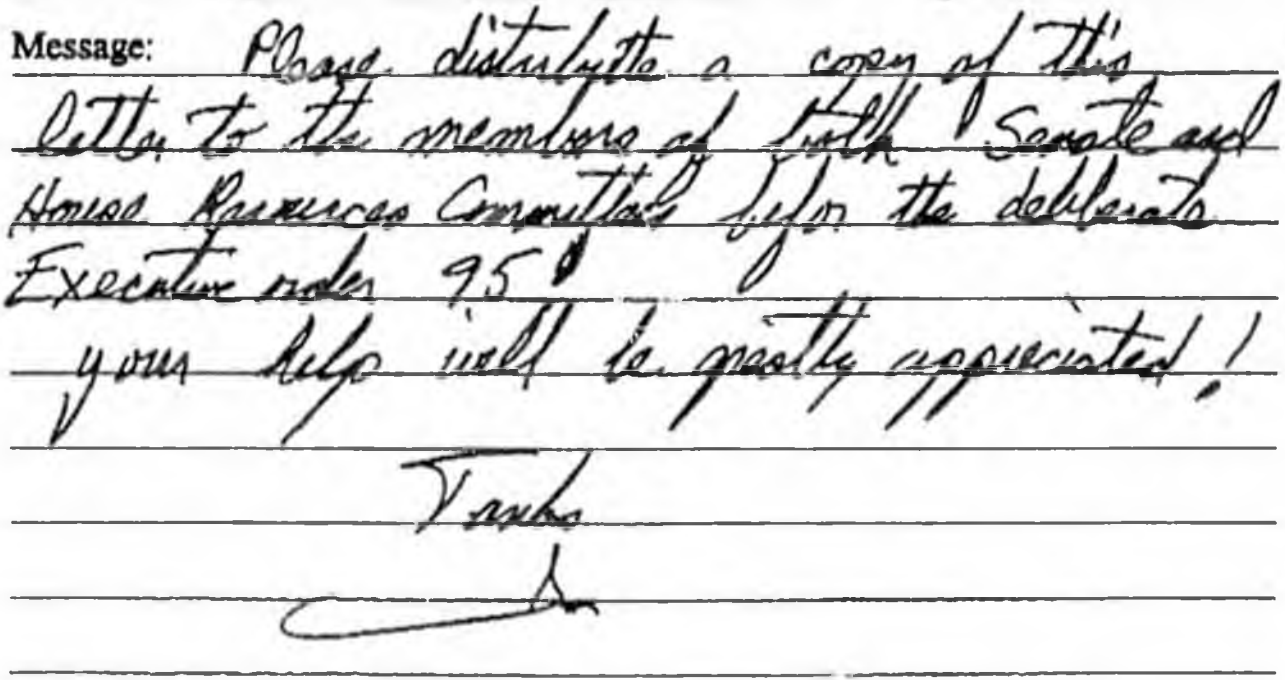 Message: Please distribute a copy of this
letter to the members of both Senate and
House Resources Committees befor the deliberate
Executive order 95
your help will be greatly appreciated!
Thanks